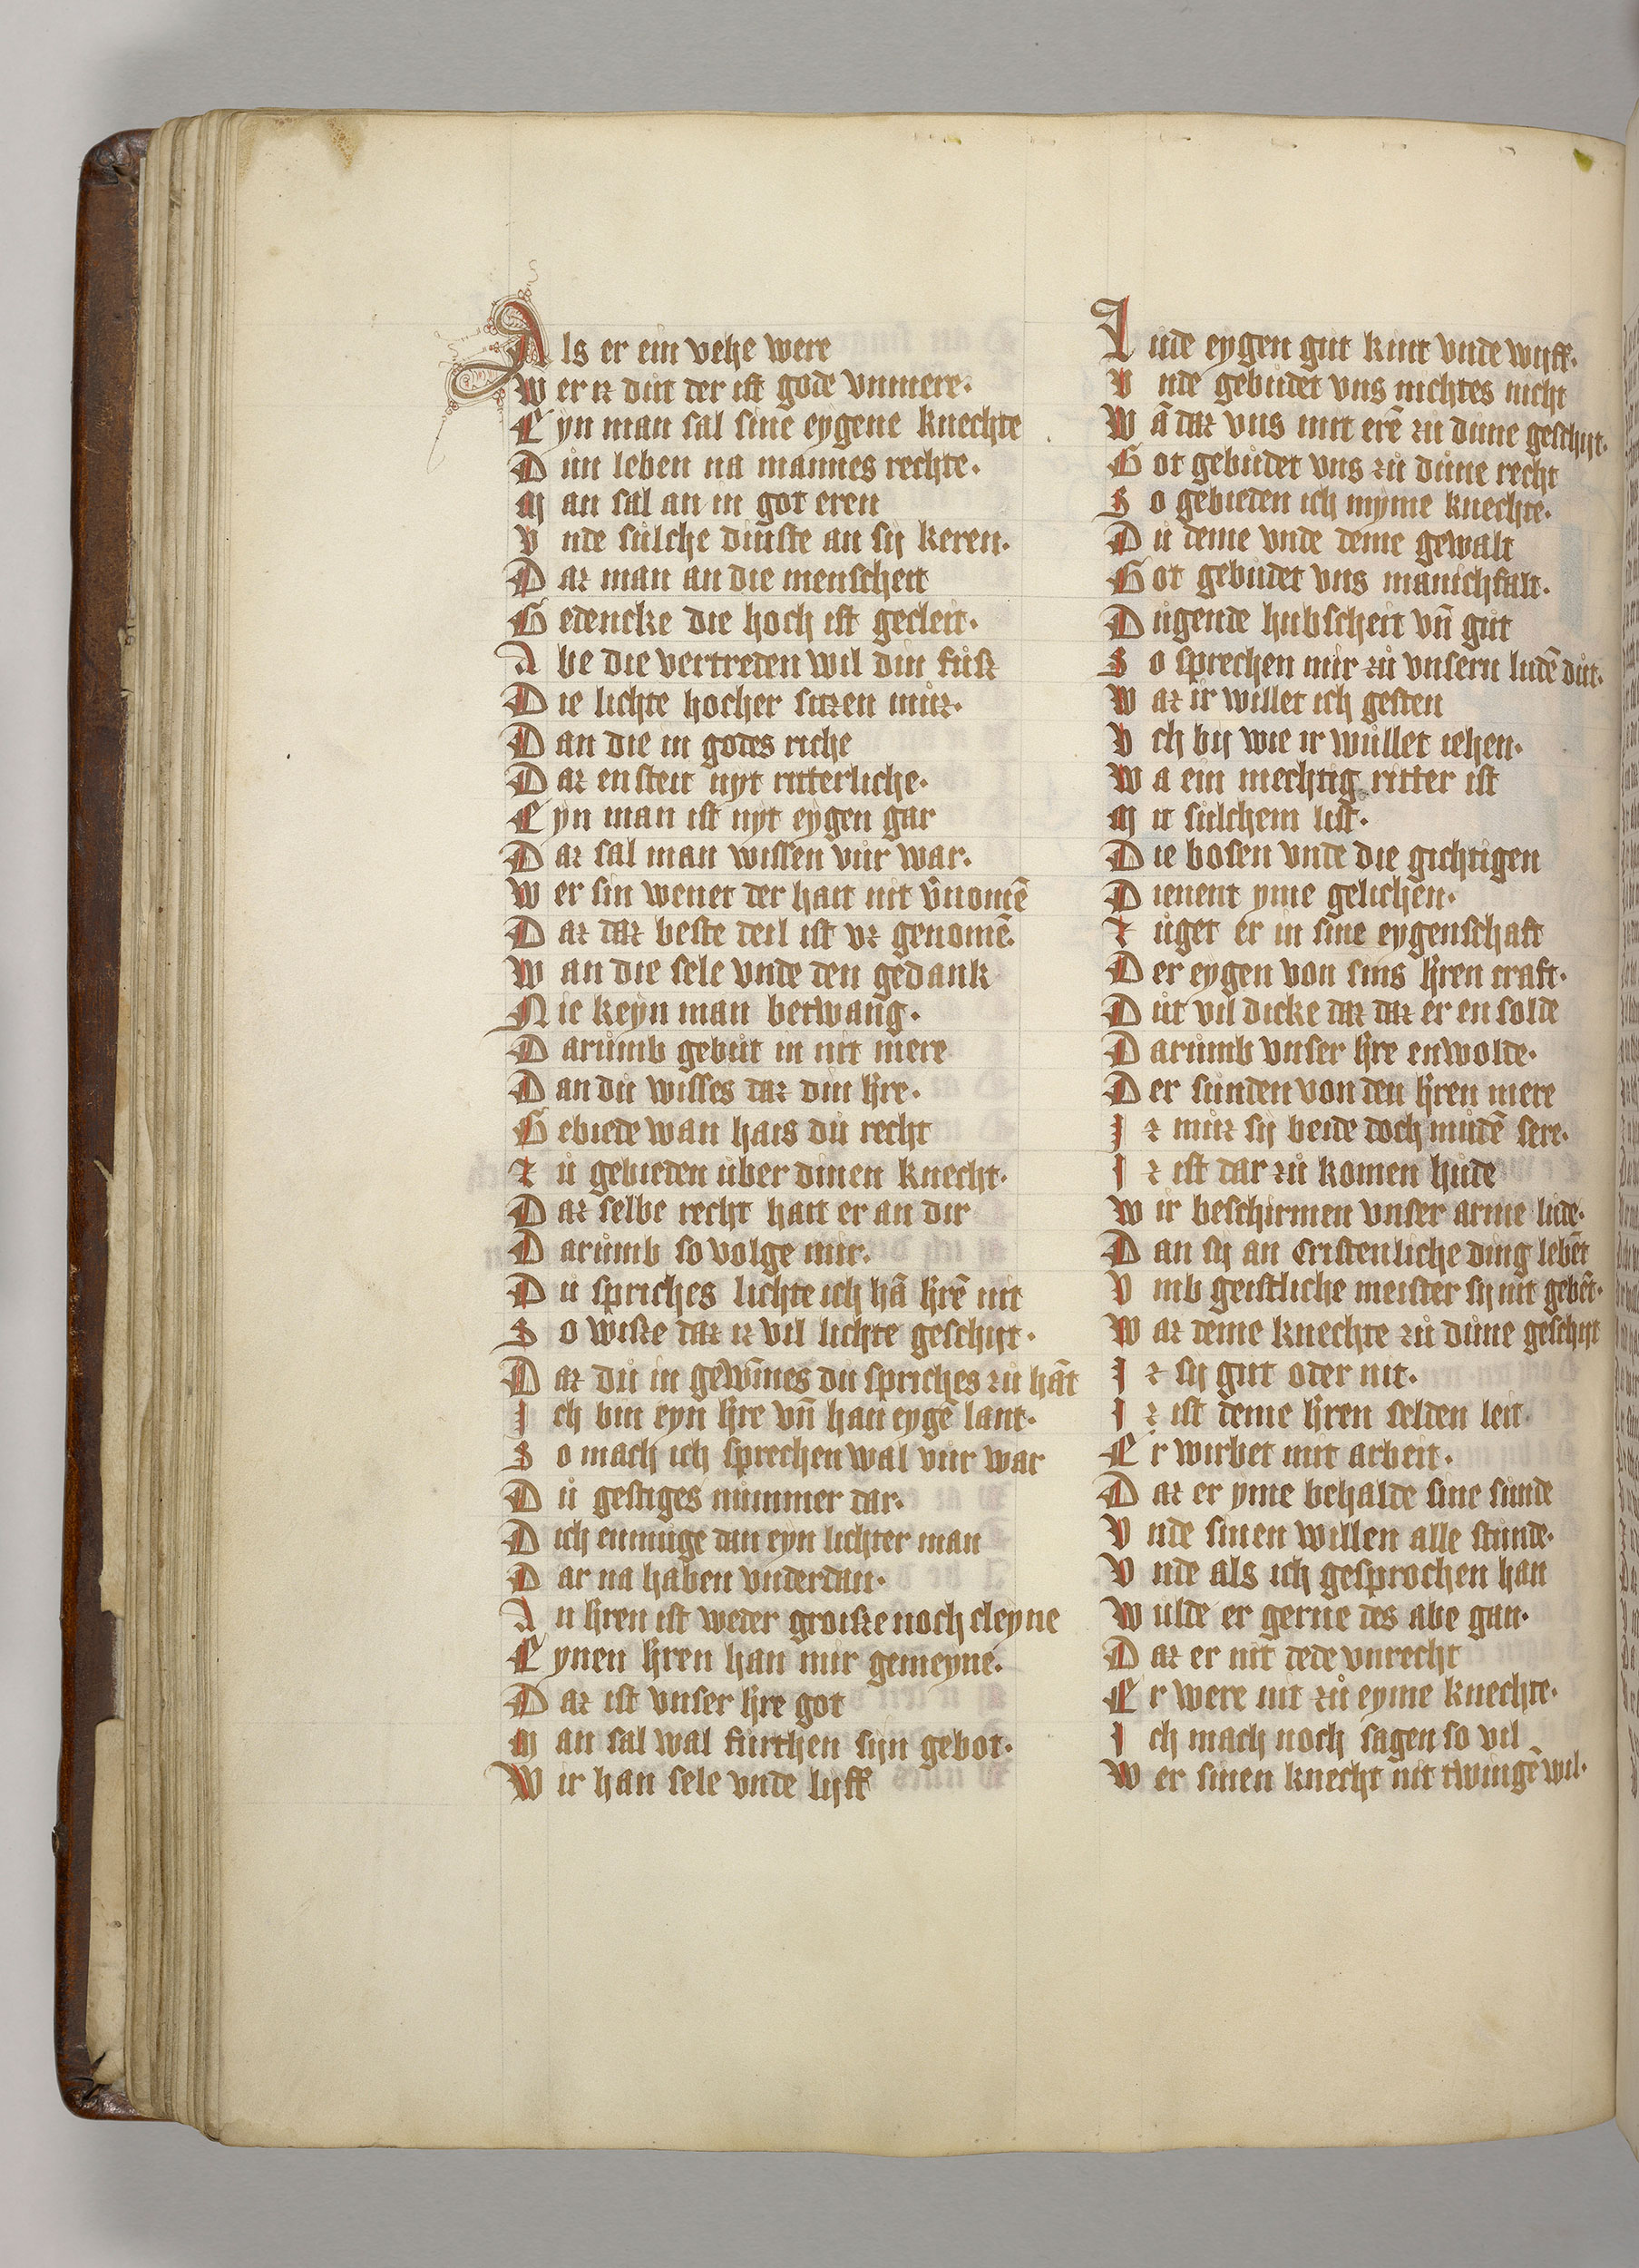 Als er ein vehe were
Wer iz dut der ist gode vnmere.
Eyn man sal sine eygene knechte
Dun leben na mannes rechte.
Man sal an in got eren
Vnde sulche dinste an sij keren.
Daz man an die menscheit
Gedencke die hoch ist gecleit.
Abe die vertreden wil din fuͦß
Die lichte hocher sitzen muͦz.
Dan die in godes riche
Daz en steit nyt ritterliche.
Eyn man ist nyt eygen gar
Daz sal man wissen vur war.
Wer sin wenet der hait nit v̄nomē
Daz daz beste deil ist vz genomē.
Wan die sele vnde den gedank
Nie keyn man betwang.
Darumb gebut in nit mere
Dan du wisses daz din h̄re.
Gebiede wan hais du recht
Zu gebieden uber dinen knecht.
Daz selbe recht hait er an dir
Darumb so volge mir.
Du spriches lichte ich hā h̄rē nit
So wiße daz iz vil lichte geschijt.
Daz du in gewīnes du spriches zu hāt
Ich bin eyn h̄re vn̄ han eygē lant.
So mach ich sprechen wal vur war
Du gestiges nummer dar.
Dich enmuge dan eyn lichter man
Dar na haben vnderdan.
An h̄ren ist weder groiße noch cleyne
Eynen h̄ren han mir gemeyne.
Daz ist vnser h̄re got
Man sal wal furthen sijn gebot.
Wir han sele vnde lijff
Lude eygen gut kint vnde wijff.
Vnde gebudet vns nichtes nicht
Wā daz vns mit erē zu dune geschijt.
Got gebudet vns zu dune recht
So gebieden ich myme knechte.
Du deme vnde deme gewalt
Got gebudet vns manichfalt.
Dugende hubscheit vn̄ gut
So sprechen mir zu vnsern ludē dut.
Waz ir willet ich gesten
Vch bij wie ir wullet iehen.
Wa ein mechtig ritter ist
Mit sulchem list.
Die bosen vnde die gichtigen
Dienent yme gelichen.
Zuget er in sine eygenschaft
Der eygen von sins h̄ren craft.
Dut vil dicke daz daz er en solde
Darumb vnser h̄re enwolde.
Der sunden von den h̄ren mere
Iz muz sij beide doch mudē sere.
Iz ist dar zu komen hude
Wir beschirmen vnser arme lude.
Dan sij an cristenliche ding lebēt
Vmb geistliche meister sij nit gebēt.
Waz deme knechte zu dune geschijt
Iz sij gut oder nit.
Iz ist deme h̄ren selden leit
Er wirbet mit arbeit.
Daz er yme behalde sine sunde
Vnde sinen willen alle stunde.
Vnde als ich gesprochen han
Wulde er gerne des abe gan.
Daz er nit dede vnrecht
Er were nit zu eyme knechte.
Ich mach noch sagen so vil
Wer sinen knecht nit twingē wil.